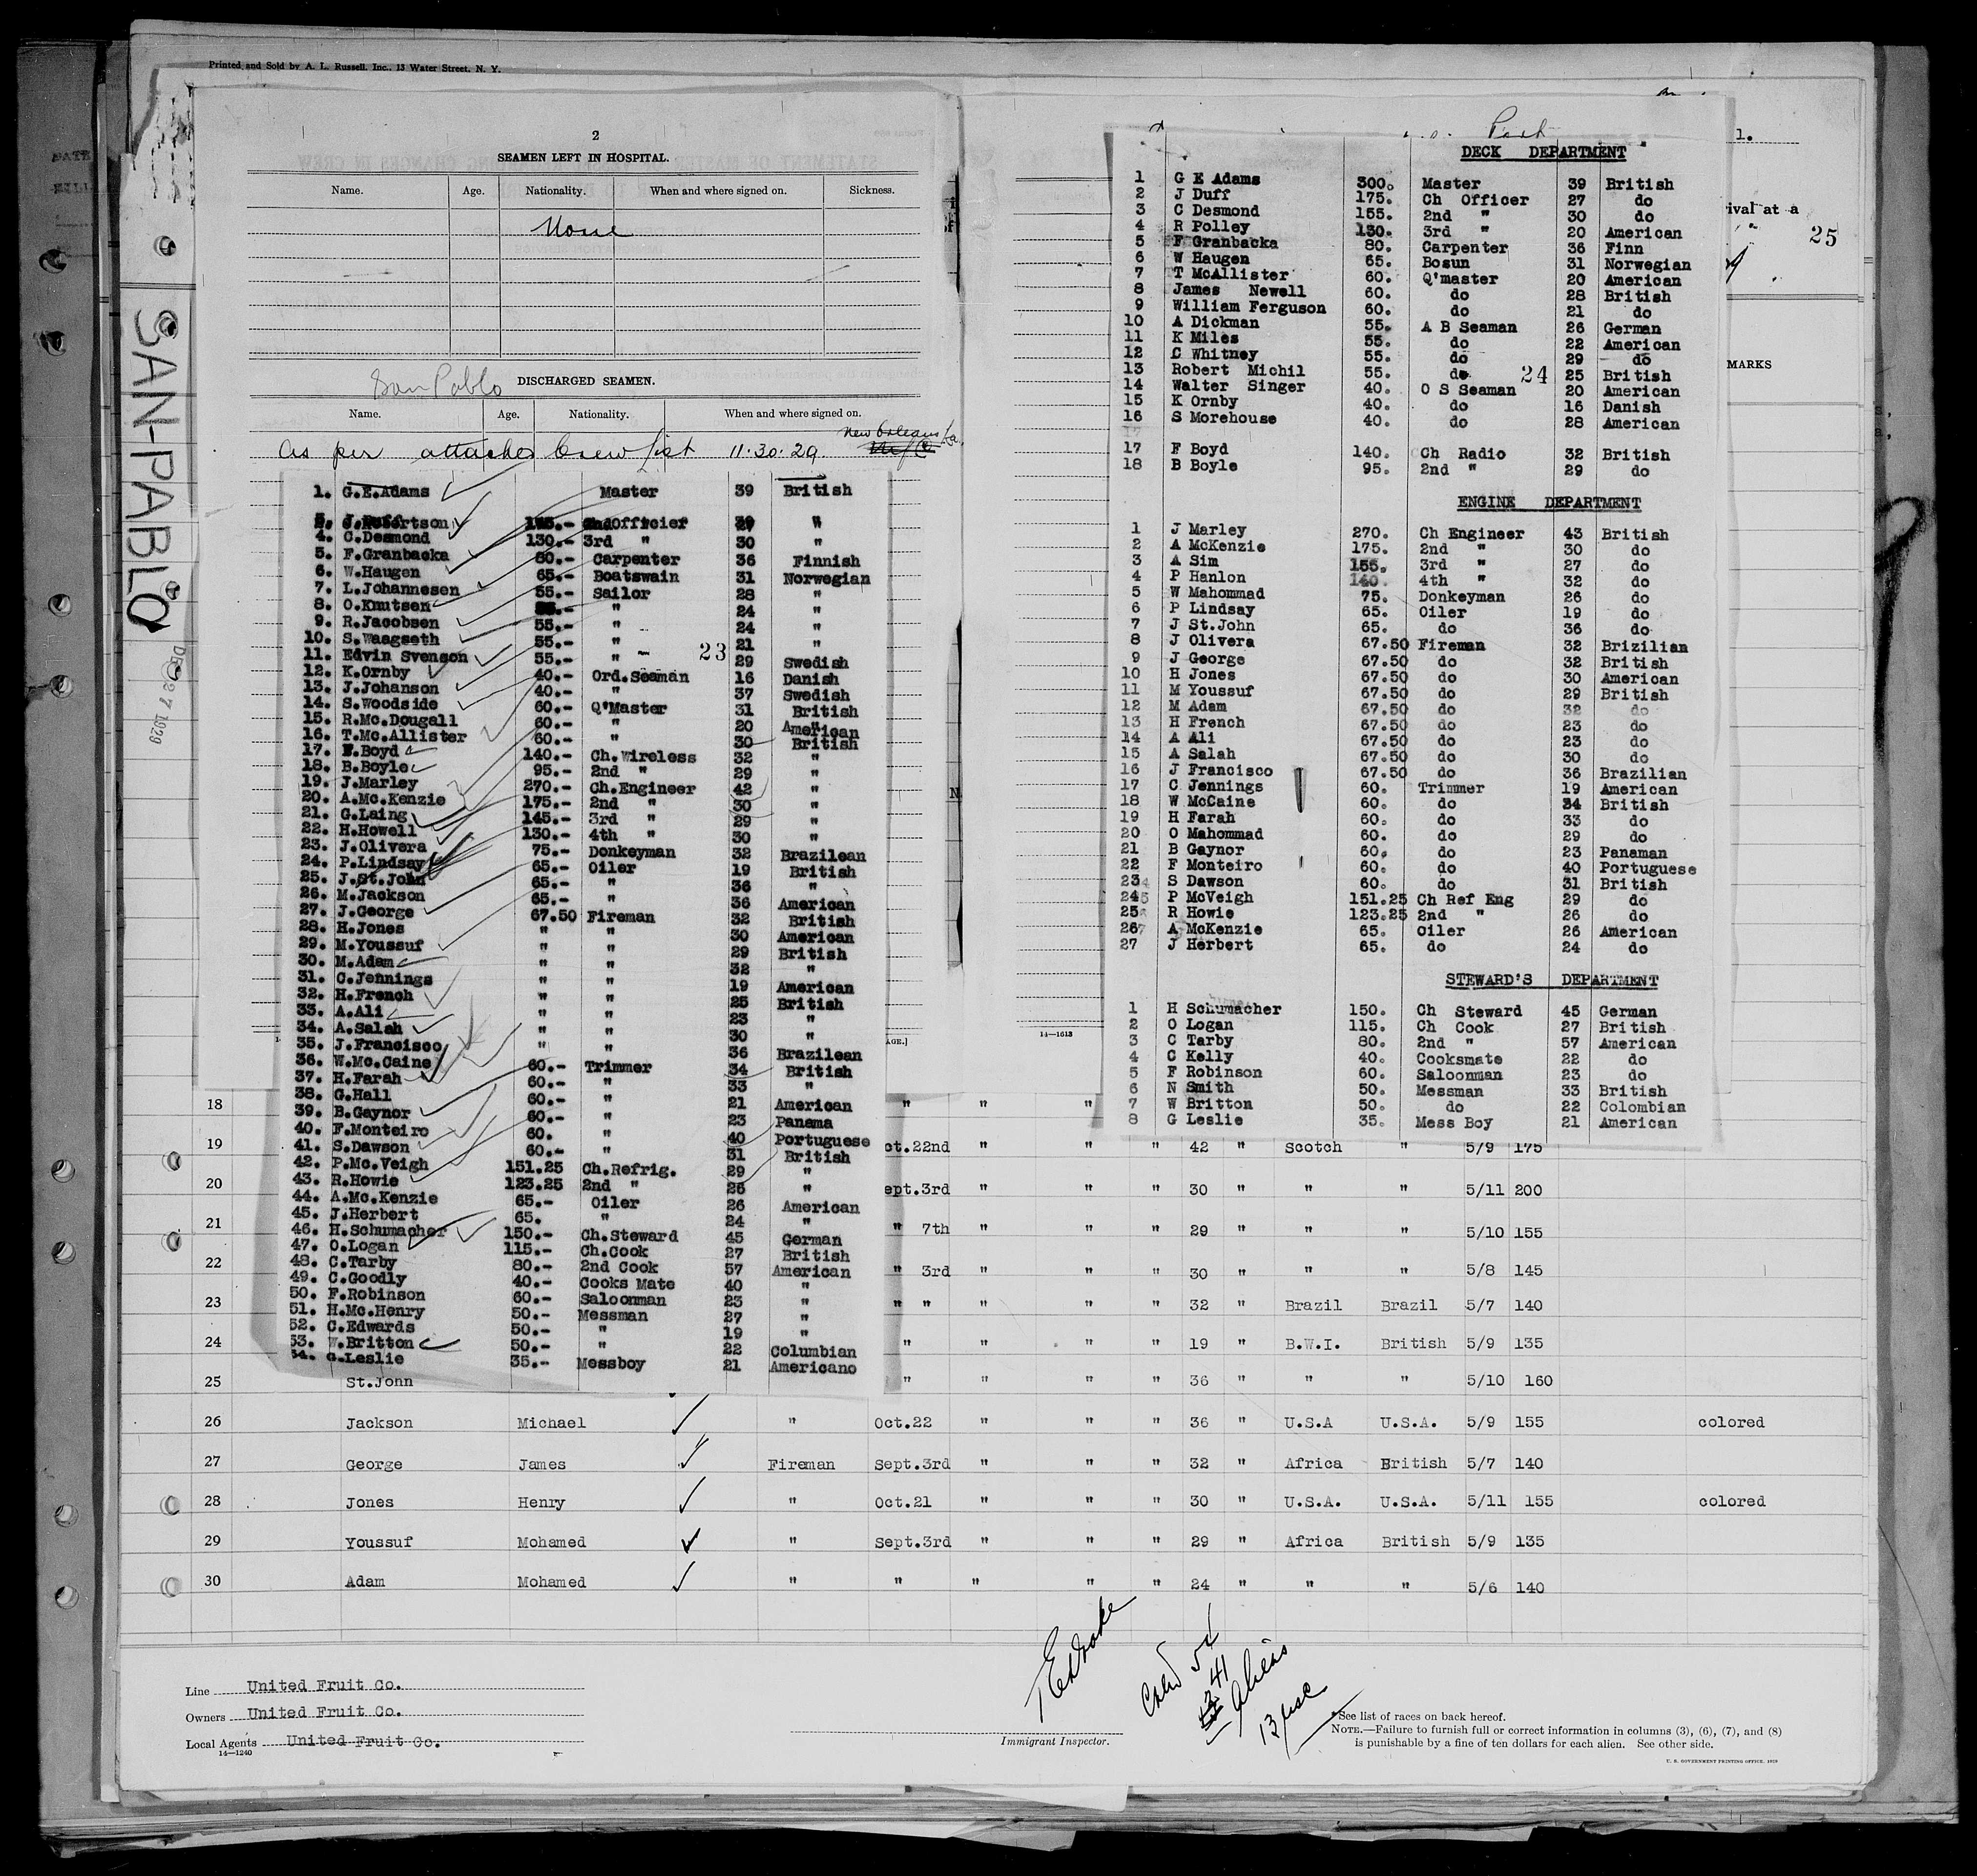 Printed and Sold by A. L. Russell, Inc., 13 Water Street, N. Y.
SAN-PABLO
DEC 27 1929
2
SEAMEN LEFT IN HOSPITAL.
Name. Age. Nationality. When and where signed on. Sickness.
None
San Pablo DISCHARGED SEAMEN.
Name. Age. Nationality. When and where signed on.
As per attached Crew List 11-30-29 New Orleans La.
1. G.E.Adams Master 39 British
J. Robertson 2nd Officier "
4. C.Desmond 130.- 3rd " 30 "
5. F.Granbacka 80.- Carpenter 36 Finnish
6. W.Haugen 65.- Boatswain 31 Norwegian
7. L.Johannesen 55.- Sailor 28 "
8. O.Knutsen " 24 "
9. R.Jacobsen 55.- " 24 "
10. S.Waagseth 55.- " 21 "
11. Edvin Svenson 55.- " 29 Swedish
23
12. K.Ornby 40.- Ord.Seaman 16 Danish
13. J.Johanson 40.- " 37 Swedish
14. S.Woodside 60.- Q'Master 31 British
15. R.Mc.Dougall 60.- " 20 American
16. T.Mc.Allister 60.- " 30 British
17. F.Boyd 140.- Ch.Wireless 32 "
18. B.Boyle 95.- 2nd " 29 "
19. J.Marley 270.- Ch.Engineer 42 "
20. A.Mc.Kenzie 175.- 2nd " 30 "
21. G.Laing 145.- 3rd " 29 "
22. H.Howell 130.- 4th " 30 "
23. J.Olivera 75.- Donkeyman 32 Brazilean
24. P.Lindsay 65.- Oiler 19 British
25. J.St.John 65.- " 36 "
26. M.Jackson 65.- " 36 American
27. J.George 67.50 Fireman 32 British
28. H.Jones " " 30 American
29. M.Youssuf " " 29 British
30. M.Adam " " 32 "
31. C.Jennings " " 19 American
32. H.French " " 25 British
33. A.Ali " " 23 "
34. A.Salah " " 30 "
35. J.Francisco " " 36 Brazilean
36. W.Mc.Caine 60.- Trimmer 34 British
37. H.Farah 60.- " 33 "
38. G.Hall 60.- " 21 American
39. B.Gaynor 60.- " 23 Panama
40. F.Monteiro 60. " 40 Portuguese
41. S.Dawson 60.- " 31 British
42. P.Mc.Veigh 151.25 Ch.Refrig. 29 "
43. R.Howie 123.25 2nd " 26 "
44. A.Mc.Kenzie 65.- Oiler 26 American
45. J.Herbert 65. " 24 "
46. H.Schumacher 150.- Ch.Steward 45 German
47. O.Logan 115.- Ch.Cook 27 British
48. C.Tarby 80.- 2nd Cook 57 American
49. C.Goodly 40.- Cooks Mate 40 "
50. F.Robinson 60.- Saloonman 23 "
51. H.Mc.Henry 50.- Messman 27 "
52. C.Edwards 50.- " 19 "
53. W.Britton 50.- " 22 Columbian
54. G.Leslie 35.- Messboy 21 Americano
DECK DEPARTMENT
1 G E Adams 300. Master 39 British
2 J Duff 175. Ch Officer 27 do
3 C Desmond 155. 2nd " 30 do
4 R Polley 130. 3rd " 20 American
5 F Granbacka 80. Carpenter 36 Finn
6 W Haugen 65. Bosun 31 Norwegian
7 T McAllister 60. Q'master 20 American
8 James Newell 60. do 28 British
9 William Ferguson 60. do 21 do
10 A Dickman 55. A B Seaman 26 German
11 K Miles 55. do 22 American
12 C Whitney 55. do 29 do
13 Robert Michil 55. do 24 25 British
14 Walter Singer 40. O S Seaman 20 American
15 K Ornby 40. do 16 Danish
16 S Morehouse 40. do 28 American
17 F Boyd 140. Ch Radio 32 British
18 B Boyle 95. 2nd " 29 do
ENGINE DEPARTMENT
1 J Marley 270. Ch Engineer 43 British
2 A McKenzie 175. 2nd " 30 do
3 A Sim 155. 3rd " 27 do
4 P Hanlon 140. 4th " 32 do
5 W Mahommad 75. Donkeyman 26 do
6 P Lindsay 65. Oiler 19 do
7 J St.John 65. do 36 do
8 J Olivera 67.50 Fireman 32 Brizilian
9 J George 67.50 do 32 British
10 H Jones 67.50 do 30 American
11 M Youssuf 67.50 do 29 British
12 M Adam 67.50 do 32 do
13 H French 67.50 do 23 do
14 A Ali 67.50 do 23 do
15 A Salah 67.50 do 30 do
16 J Francisco 67.50 do 36 Brazilian
17 C Jennings 60. Trimmer 19 American
18 W McCaine 60. do 34 British
19 H Farah 60. do 33 do
20 O Mahommad 60. do 29 do
21 B Gaynor 60. do 23 Panaman
22 F Monteiro 60. do 40 Portuguese
23 S Dawson 60. do 31 British
24 P McVeigh 151.25 Ch Ref Eng 29 do
25 R Howie 123.25 2nd " 26 do
26 A McKenzie 65. Oiler 26 American
27 J Herbert 65. do 24 do
STEWARD'S DEPARTMENT
1 H Schumacher 150. Ch Steward 45 German
2 O Logan 115. Ch Cook 27 British
3 C Tarby 80. 2nd " 57 American
4 C Kelly 40. Cooksmate 22 do
5 F Robinson 60. Saloonman 23 do
6 N Smith 50. Messman 33 British
7 W Britton 50. do 22 Colombian
8 G Leslie 35. Mess Boy 21 American
1.
rival at a
25
MARKS
14—1613
AGE.]
18 " " "
19 ct.22nd " " " 42 " Scotch " 5/9 175
20 ept.3rd " " " 30 " " " 5/11 200
21 " 7th " " " 29 " " " 5/10 155
22 " 3rd " " " 30 " " " 5/8 145
23 " " " " " 32 " Brazil Brazil 5/7 140
24 " " " " 19 " B.W.I. British 5/9 135
25 St.John " " " " 36 " " " 5/10 160
26 Jackson Michael " Oct.22 " " " 36 " U.S.A U.S.A. 5/9 155 colored
27 George James Fireman Sept.3rd " " " 32 " Africa British 5/7 140
28 Jones Henry " Oct.21 " " " 30 " U.S.A. U.S.A. 5/11 155 colored
29 Youssuf Mohamed " Sept.3rd " " " 29 " Africa British 5/9 135
30 Adam Mohamed " " " " " 24 " " " 5/6 140
Line United Fruit Co.
Owners United Fruit Co.
Local Agents United Fruit Co.
14—1240
Immigrant Inspector.
41 Aliens
13 usc
See list of races on back hereof.
NOTE.—Failure to furnish full or correct information in columns (3), (6), (7), and (8)
is punishable by a fine of ten dollars for each alien. See other side.
U. S. GOVERNMENT PRINTING OFFICE, 1928